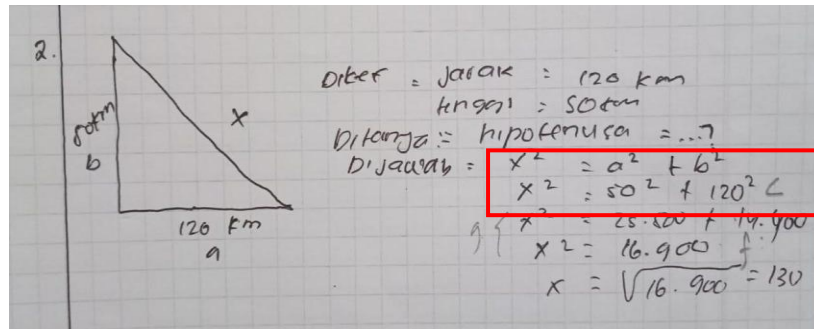 2.
50km
b
x
120 km
a
Diket = Jarak = 120 km
tinggi = 50 km
Ditanya = hipotenusa = ...?
Dijawab = x² = a² + b²
x² = 50² + 120² C
g { x² = 25.500 + 14.400
x² = 16.900 f
x = √16.900 = 130